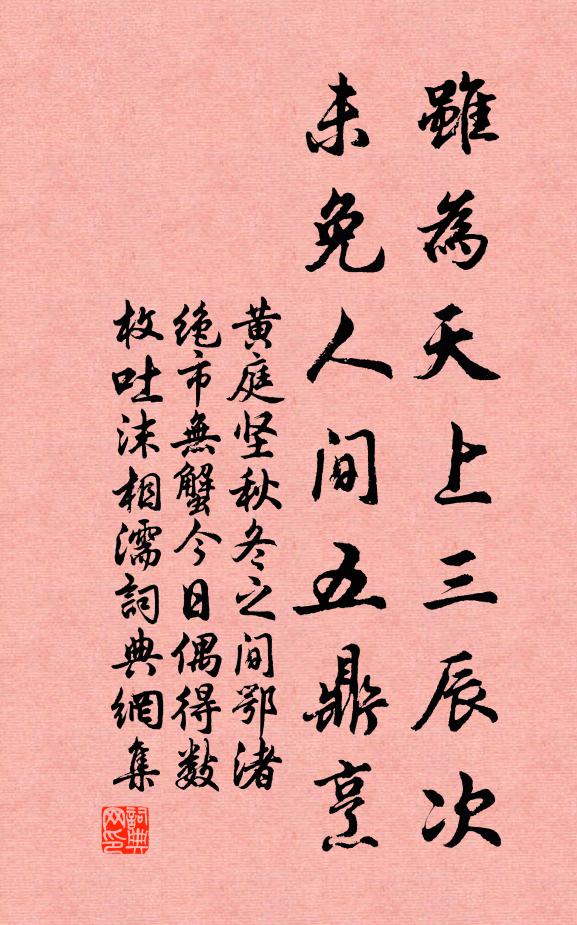 雖為天上三辰次
未免人间五鼎烹
黄庭坚秋冬之间鄂渚
绝市無蟹今日偶得数
枚吐沫相濡詞典網集
詞典网印